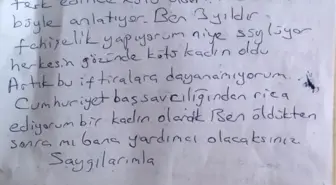 terk edince kötü
böyle anlatıyor. Ben 3 yıldır
fahişelik yapıyorum niye söylüyor
herkesin gözünde kötü kadın oldu
Artık bu iftiralara dayanamıyorum...
Cumhuriyet başsavcılığından rica
ediyorum bir kadın olarak Ben öldükten
sonra mı bana yardımcı olacaksınız
Saygılarımla